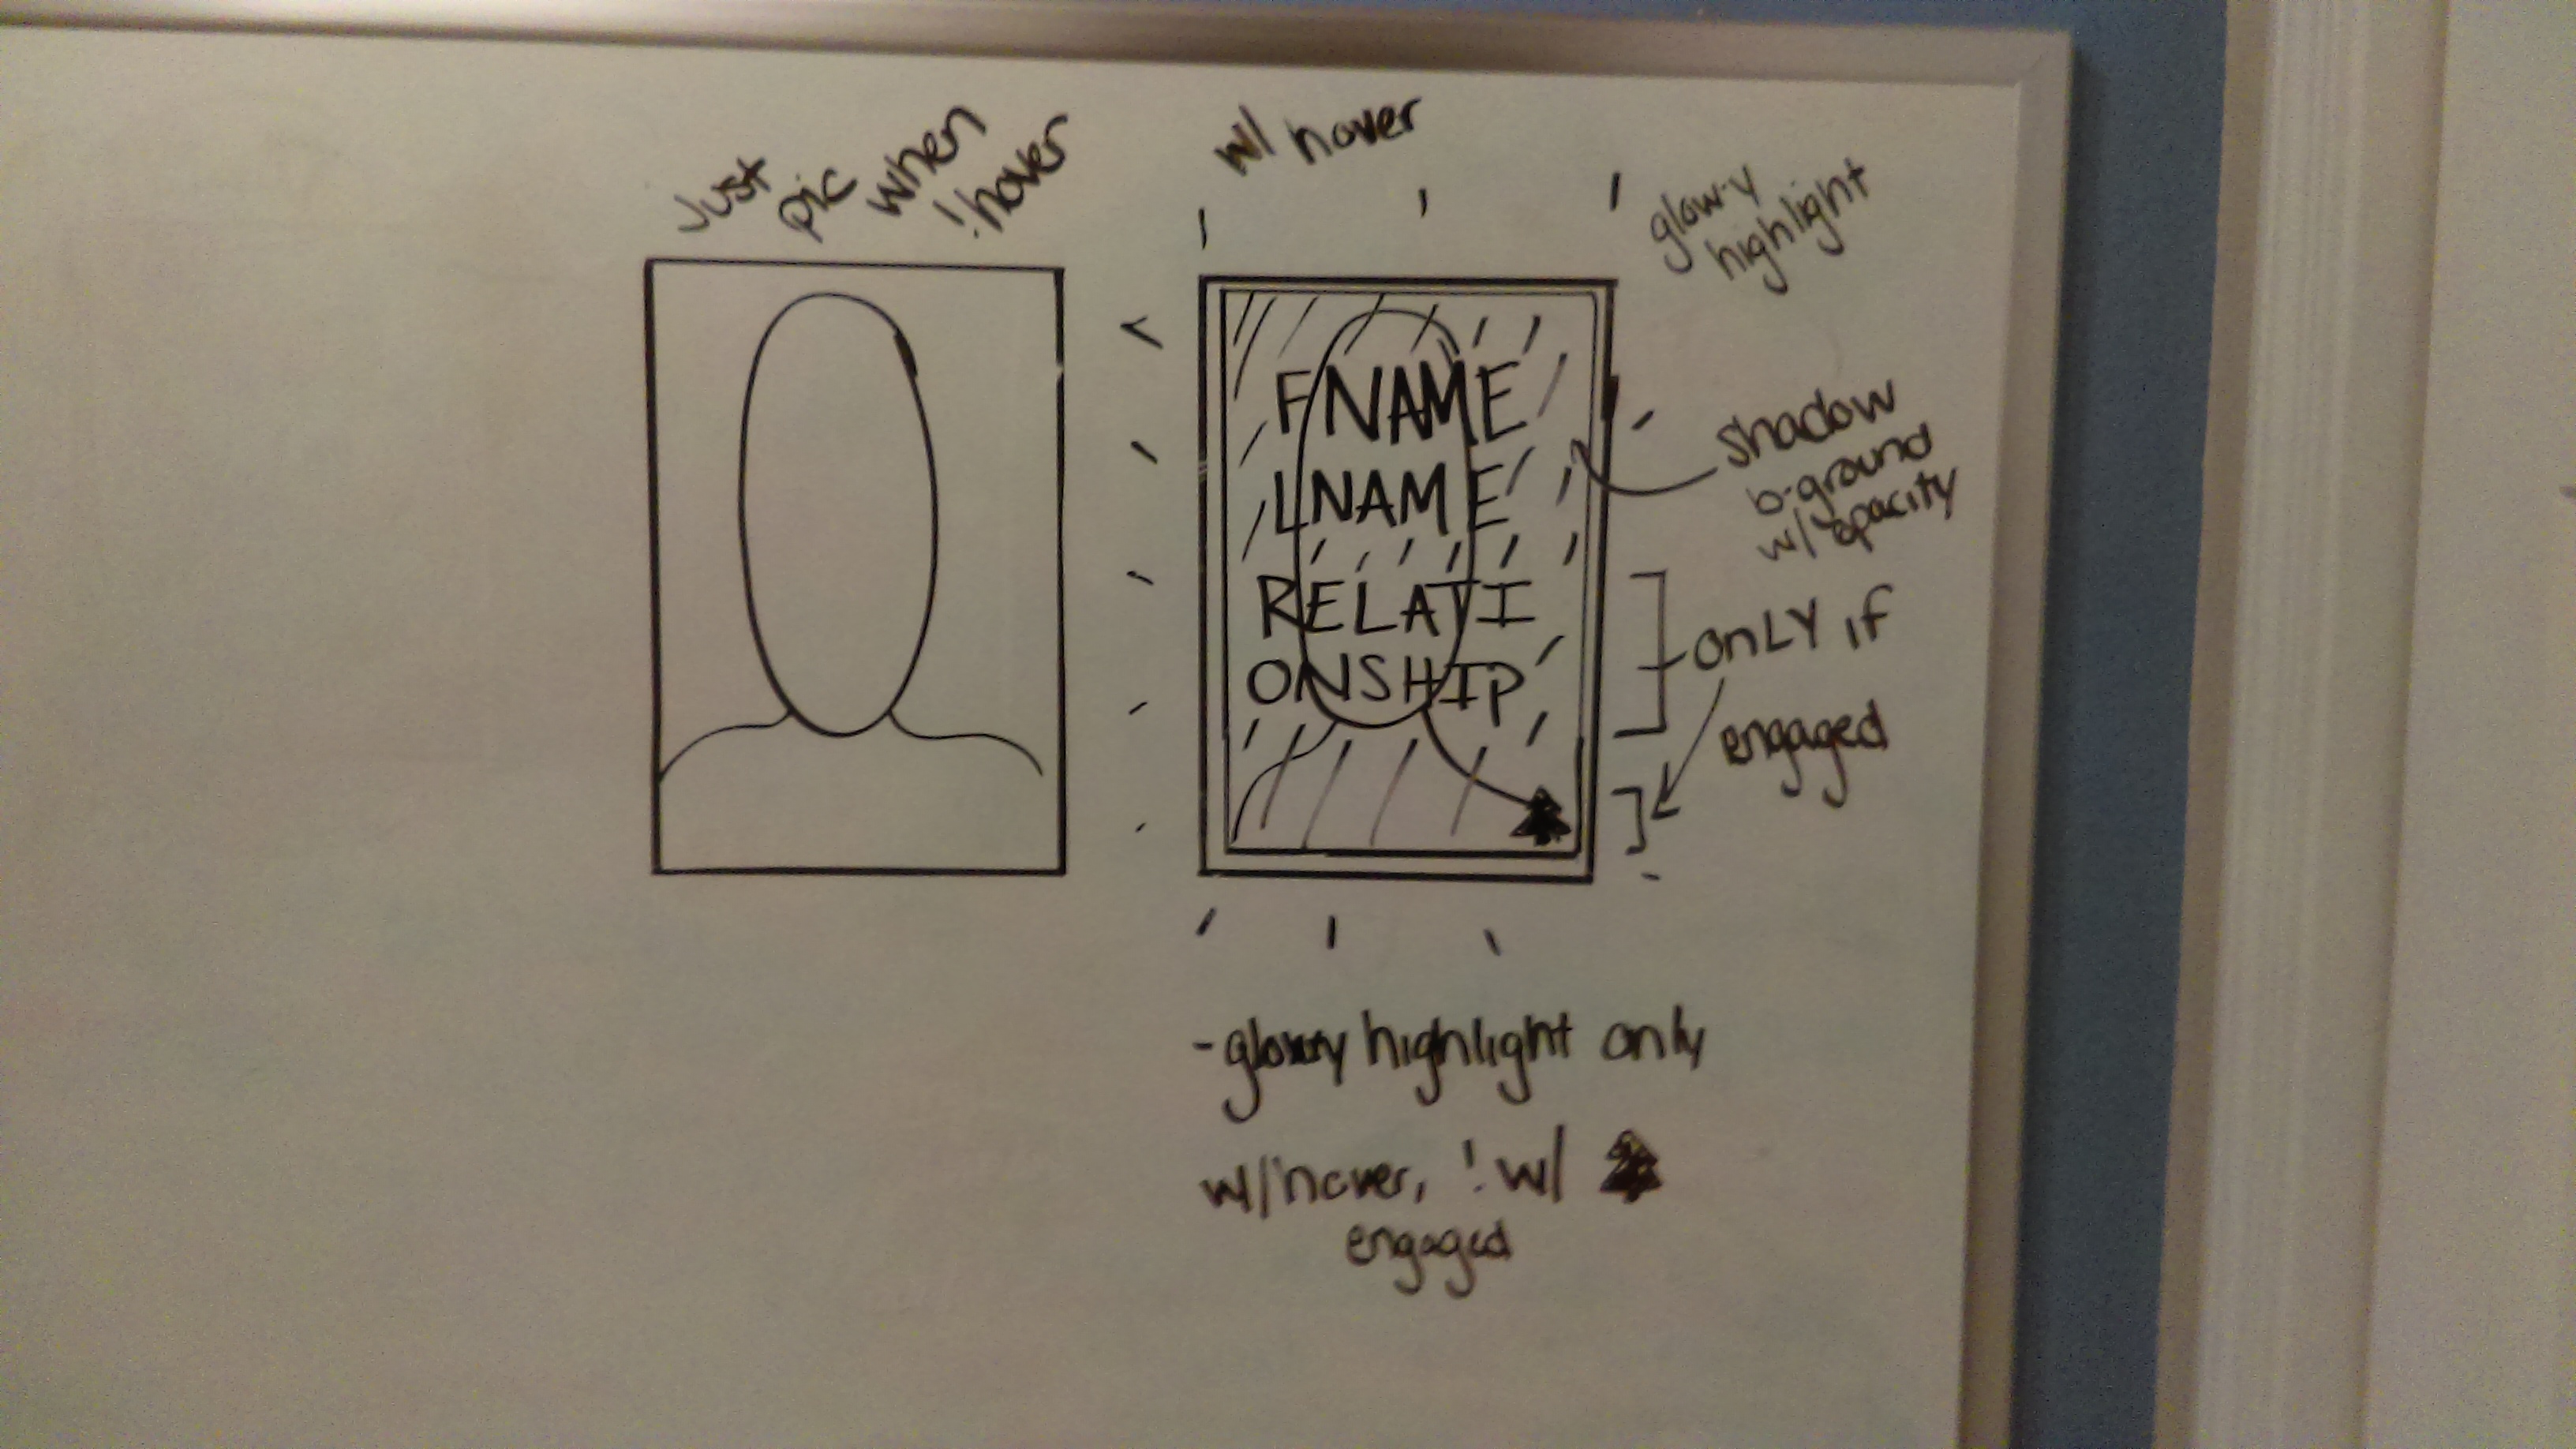 Just
pic
when
!hover
w/ hover
glow-y
highlight
FNAME
LNAME
RELATI
ONSHIP
shadow
b-ground
w/ opacity
onLY if
engaged
- glowy highlight only
w/ hover, ! w/
engaged